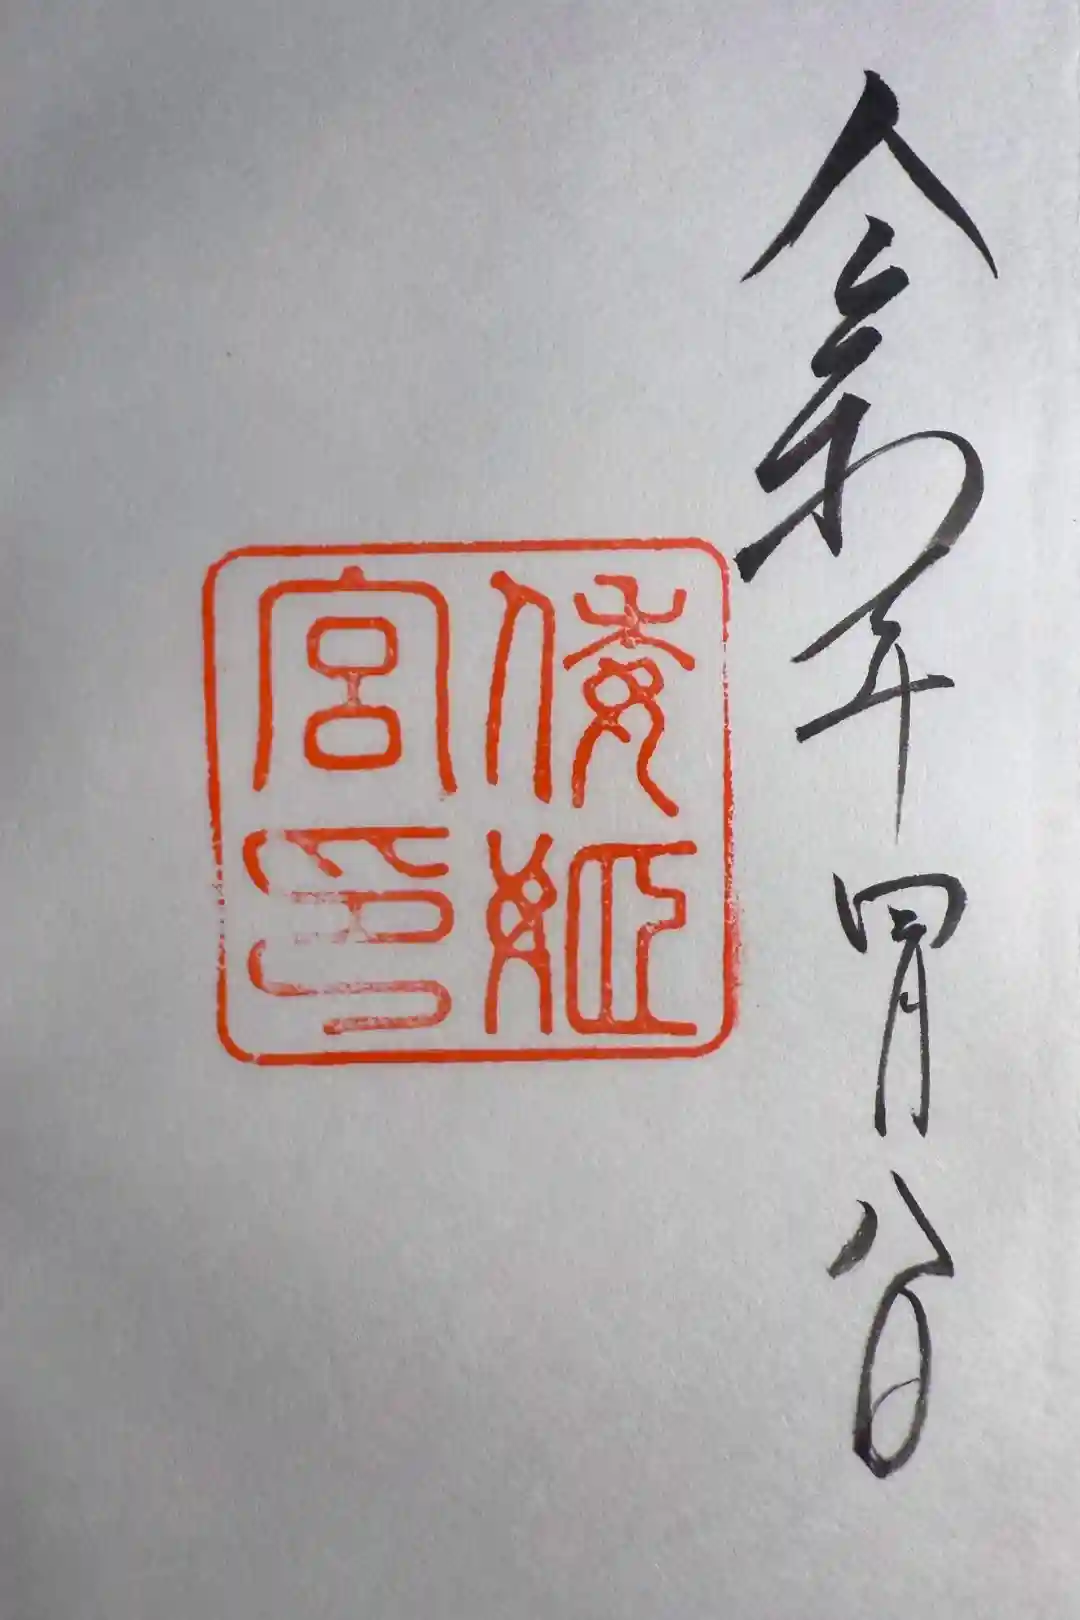 令和年四月八日
倭姫
宮印